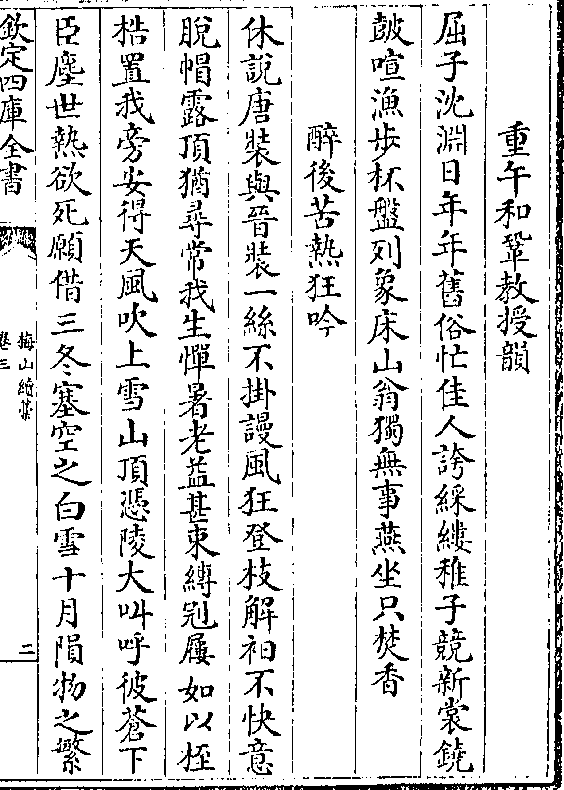 重午和鞏教授韻
屈子沈淵日年年舊俗忙佳人誇綵縷稚子競新裳鐃
皷喧漁步杯盤列象床山翁獨無事燕坐只焚香
醉後苦熱狂吟
休說唐裝與晉裝一絲不掛謾風狂登枝解衵不快意
脫帽露頂猶尋常我生憚暑老益甚束縛剋屨如以桎
梏置我旁安得天風吹上雪山頂憑陵大叫呼彼蒼下
臣塵世熱欲死願借三冬塞空之白雪十月隕物之繁
欽定四庫全書
梅山續藁
卷三
二